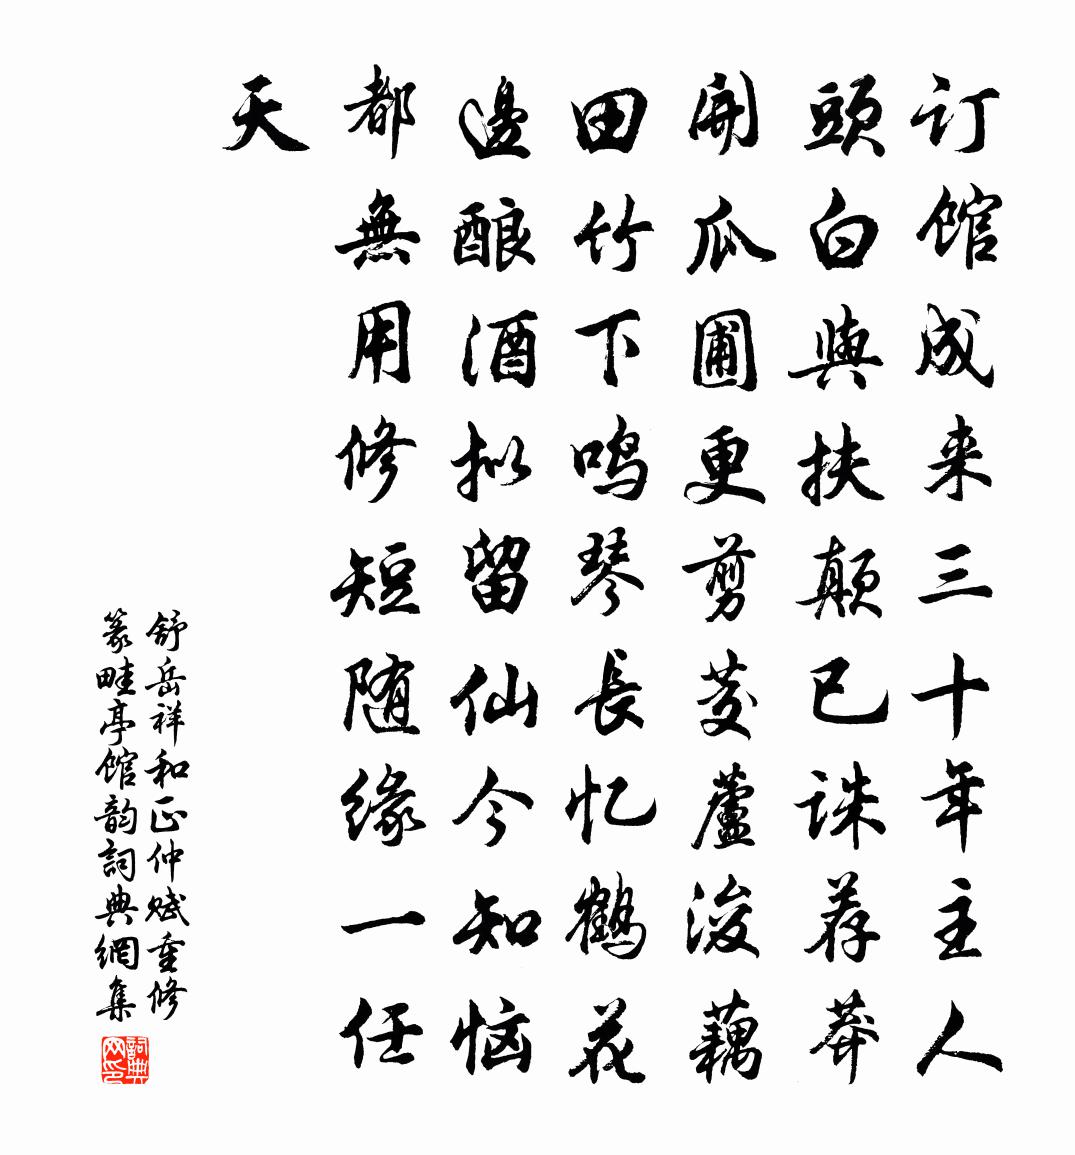 订馆成来三十年主人
頭白與扶颠已诛荐莽
開瓜圃更剪茭蘆浚藕
田竹下鸣琴長忆鹤花
邊酿酒拟留仙今知恼
都無用修短随缘一任
天
舒岳祥和正仲赋重修
篆畦亭馆韵詞典網集
詞典网印